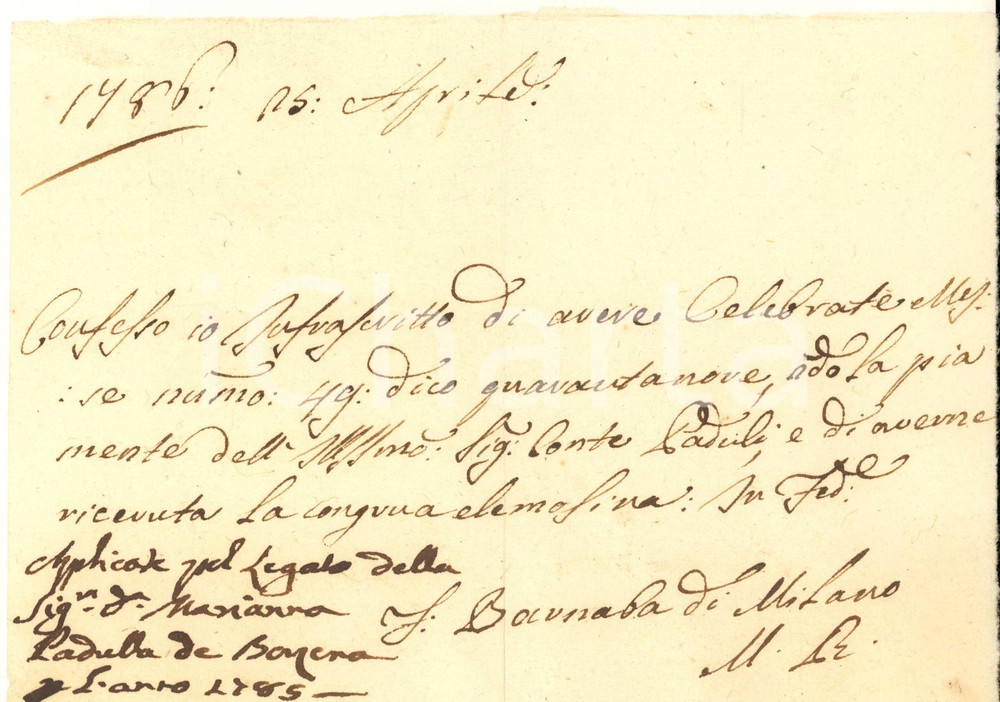 1786: 25: Aprile:
Confesso io Infrascritto di avere Celebrate Mes:
:se numo: 49: dico quarantanove, sdo la pia
mente dell' Illsmo: Sig: Conte Paduli, e di averne
ricevuta la congrua elemosina: In Fede:
Applicate pel Legato della
Sigra Da Marianna
Padulla de
p l'anno 1785 —
F: Barnaba di Milano
iCharta